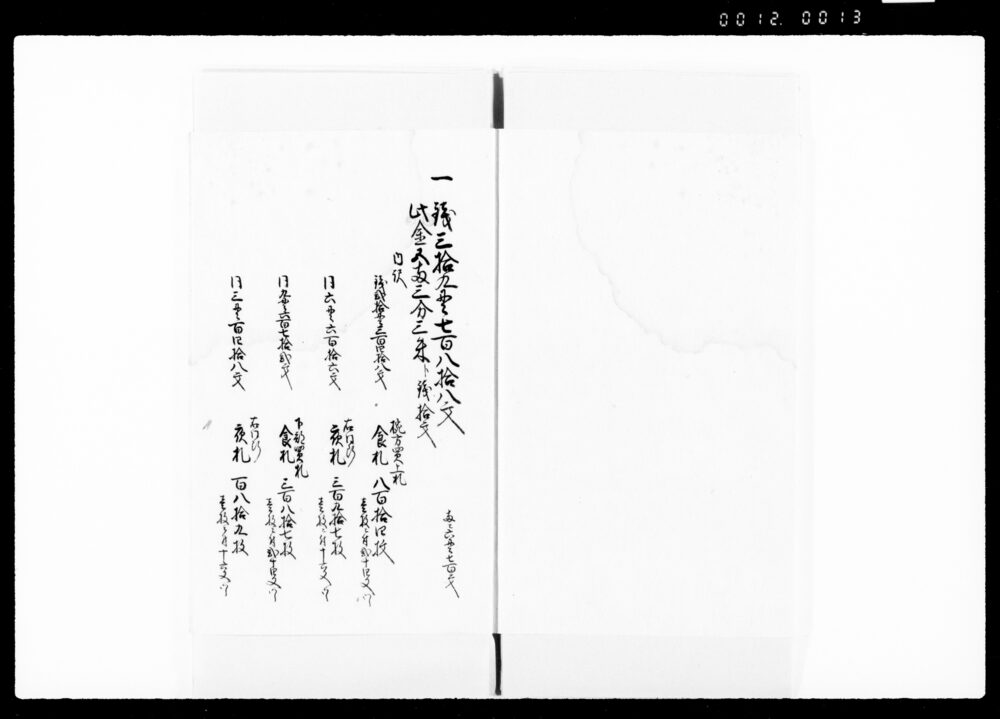 0012. 0013
一 銭三拾九貫七百八拾八文
両ニ六貫七百文
此金五両三分三朱ト銭拾文
内訳
銭弐拾貫三百四拾八文 買上札
食札 八百拾四枚
壱枚ニ付弐十四文ツヽ
同六貫六百拾六文 右同断
夜札 三百九拾七枚
壱枚ニ付十六文ツヽ
同九貫六百七拾弐文 下部買札
食札 三百八拾七枚
壱枚ニ付弐十四文ツヽ
同三貫百四拾八文 右同断
夜札 百八拾九枚
壱枚ニ付十六文ツヽ